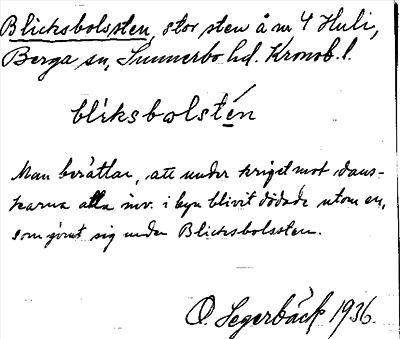 Blicksbolssten, stor sten å nr 4 Huli,
Berga sn, Sunnerbo hd. Kronob. l.
bliksbolstén
Man berättar, att under kriget mot dans-
karna alla inv. i byn blivit dödade utom en,
som gömt sig under Blicksbolssten.
O. Segerbäck 1936.